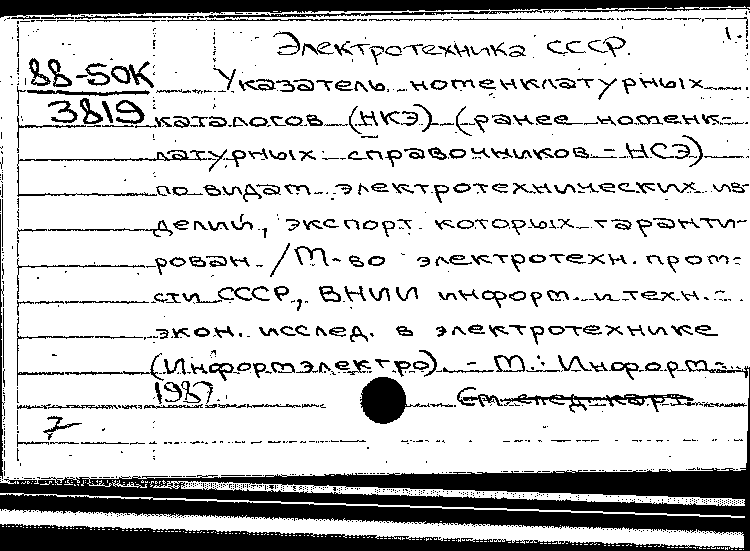 1.
Электротехника СССР.
88-50К
3819
Указатель номенклатурных
каталогов (НКЭ) (ранее номенк-
латурных справочников - НСЭ)
по видам электротехнических из-
делий, экспорт которых гаранти-
рован. /М-во электротехн. пром-
сти СССР, ВНИИ информ. и техн.-
экон. исслед. в электротехнике
(Информэлектро). - М.: Информ-
1987.
См след. карт.
7